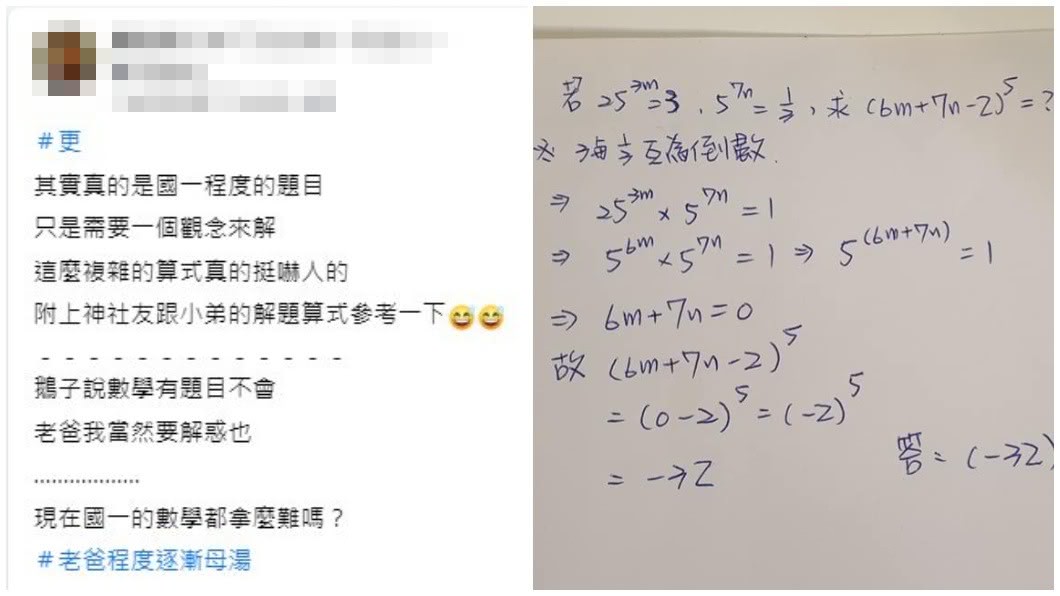 #更
其實真的是國一程度的題目
只是需要一個觀念來解
這麼複雜的算式真的挺嚇人的
附上神社友跟小弟的解題算式參考一下😅😅
- - - - - - - - - - - - -
鵝子說數學有題目不會
老爸我當然要解惑也
..................
現在國一的數學都拿麼難嗎？
#老爸程度逐漸母湯
若 25^3m=3 , 5^7n=1/3 , 求 (6m+7n-2)^5=?
※ 3與1/3互為倒數.
⇒ 25^3m × 5^7n = 1
⇒ 5^6m × 5^7n = 1 ⇒ 5^(6m+7n) = 1
⇒ 6m+7n=0
故 (6m+7n-2)^5
= (0-2)^5 = (-2)^5
= -32
答 = (-32)